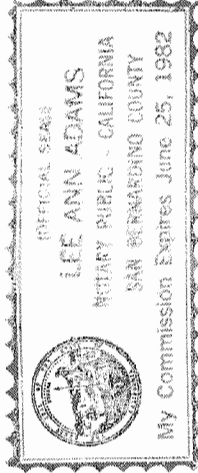 OFFICIAL SEAL
LEE ANN ADAMS
NOTARY PUBLIC - CALIFORNIA
SAN BERNARDINO COUNTY
My Commission Expires June 25, 1982